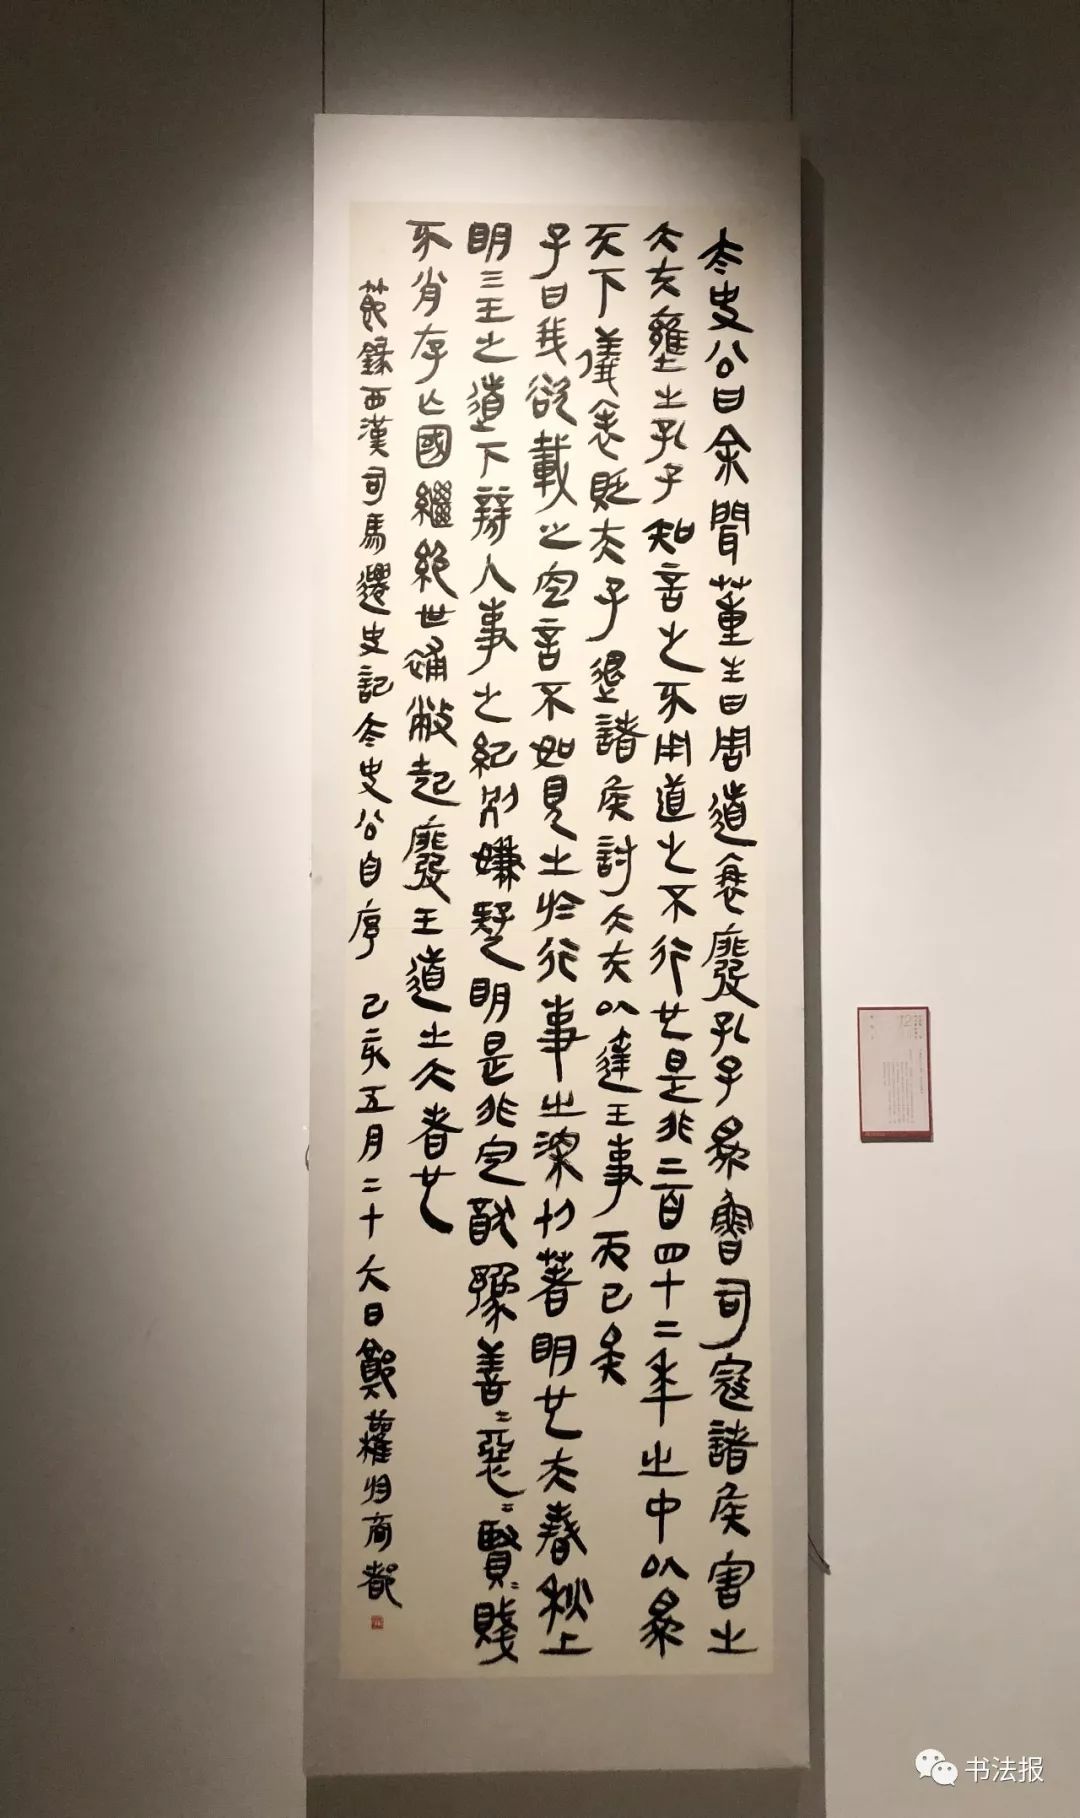 太史公曰余聞董生曰周道衰廢孔子爲魯司寇諸侯害之
大夫壅之孔子知言之不用道之不行也是非二百四十二年之中以爲
天下儀表貶夫子退諸侯討大夫以達王事而已矣
子曰我欲載之空言不如見之於行事之深切著明也夫春秋上
明三王之道下辯人事之紀別嫌疑明是非定猷豫善〻惡〻賢〻賤
不肖存亡國繼絕世補敝起廢王道之大者也
節錄西漢司馬遷史記太史公自序 己亥五月二十六日鄭 商都
书法报